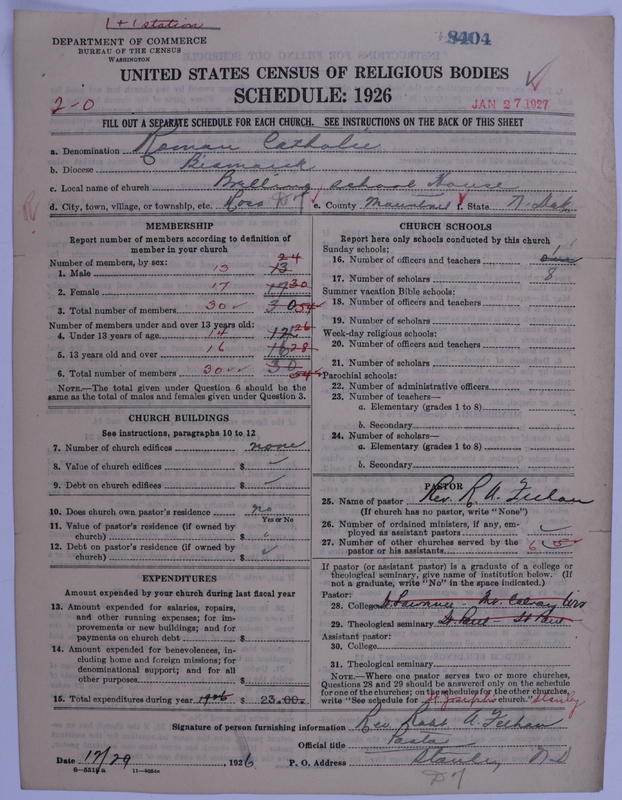 1 + 1 station
8404
DEPARTMENT OF COMMERCE
BUREAU OF THE CENSUS
WASHINGTON
UNITED STATES CENSUS OF RELIGIOUS BODIES
SCHEDULE: 1926
2-0
JAN 27 1927
FILL OUT A SEPARATE SCHEDULE FOR EACH CHURCH. SEE INSTRUCTIONS ON THE BACK OF THIS SHEET
a. Denomination Roman Catholic
b. Diocese Bismarck
c. Local name of church School House
d. City, town, village, or township, etc. Ross e. County Mountrail f. State N. Dak
MEMBERSHIP
Report number of members according to definition of member in your church
Number of members, by sex:
1. Male 13 13 24
2. Female 17 17 30
3. Total number of members 30 30 54
Number of members under and over 13 years old:
4. Under 13 years of age 14 26
5. 13 years old and over 16 28
6. Total number of members 30 30 54
NOTE.—The total given under Question 6 should be the same as the total of males and females given under Question 3.
CHURCH BUILDINGS
See instructions, paragraphs 10 to 12
7. Number of church edifices none
8. Value of church edifices $
9. Debt on church edifices $
10. Does church own pastor's residence no
Yes or No
11. Value of pastor's residence (if owned by church) $
12. Debt on pastor's residence (if owned by church) $
EXPENDITURES
Amount expended by your church during last fiscal year
13. Amount expended for salaries, repairs, and other running expenses; for improvements or new buildings; and for payments on church debt $
14. Amount expended for benevolences, including home and foreign missions; for denominational support; and for all other purposes $
15. Total expenditures during year 1926 $ 23.00
CHURCH SCHOOLS
Report here only schools conducted by this church
Sunday schools:
16. Number of officers and teachers one 1
17. Number of scholars 8
Summer vacation Bible schools:
18. Number of officers and teachers
19. Number of scholars
Week-day religious schools:
20. Number of officers and teachers
21. Number of scholars
Parochial schools:
22. Number of administrative officers
23. Number of teachers—
a. Elementary (grades 1 to 8)
b. Secondary
24. Number of scholars—
a. Elementary (grades 1 to 8)
b. Secondary
PASTOR
25. Name of pastor Rev. R A Feehan
(If church has no pastor, write "None")
26. Number of ordained ministers, if any, employed as assistant pastors
27. Number of other churches served by the pastor or his assistants 6
If pastor (or assistant pastor) is a graduate of a college or theological seminary, give name of institution below. (If not a graduate, write "No" in the space indicated.)
Pastor:
28. College St Lawrence Mt. Calvary Wis
29. Theological seminary St Paul St Paul
Assistant pastor:
30. College
31. Theological seminary
NOTE.—Where one pastor serves two or more churches, Questions 28 and 29 should be answered only on the schedule for one of the churches; on the schedules for the other churches, write "See schedule for St. Joseph's church." Stanley
Signature of person furnishing information Rev. Robt A. Feehan
Official title Pastor
Date 12/29, 1926 P. O. Address Stanley N-D
8-5319a 11-9064a